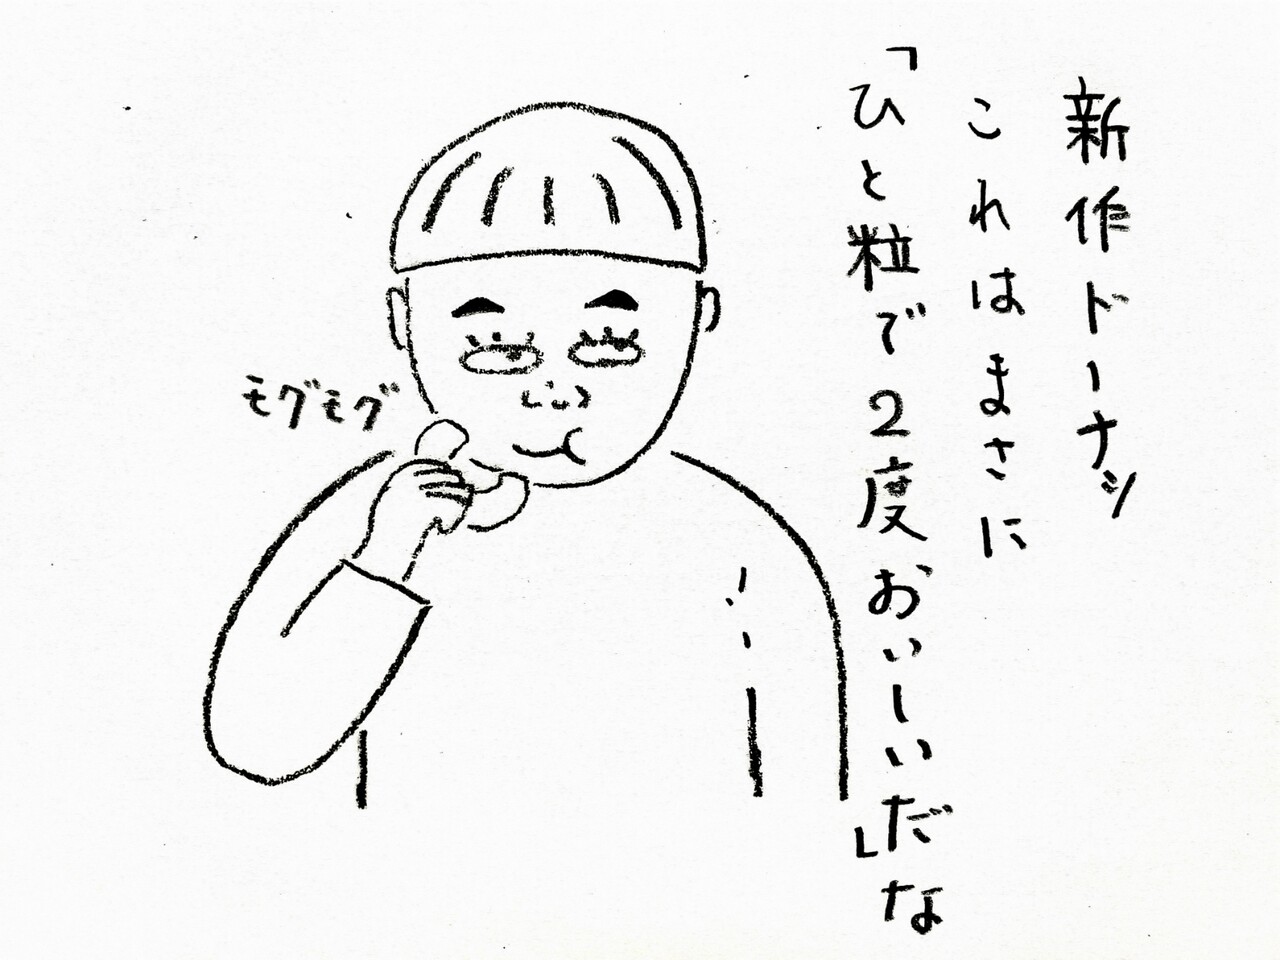 新作ドーナツ
これはまさに
「ひと粒で2度おいしい」だな
モグモグ